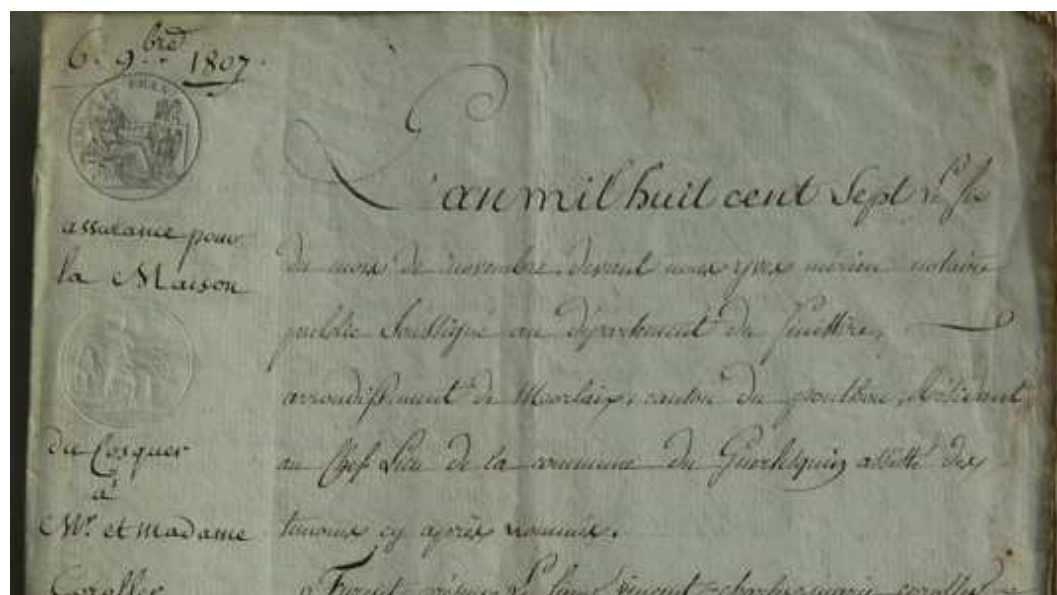 6. 9.bre 1807.
assurance pour
la Maison
du Cosquer
a
Mr. et madame
Coroller
L'an mil huit cent Sept le six
du mois de novembre, devant nous yves mérien notaire
public soussigné au département du finistère,
arrondissement de Morlaix, canton du ponthou, Résidant
au Chef Lieu de la commune du Guerlesquin assisté des
témoins cy après nommés.
Furent présents vincent charles marie coroller